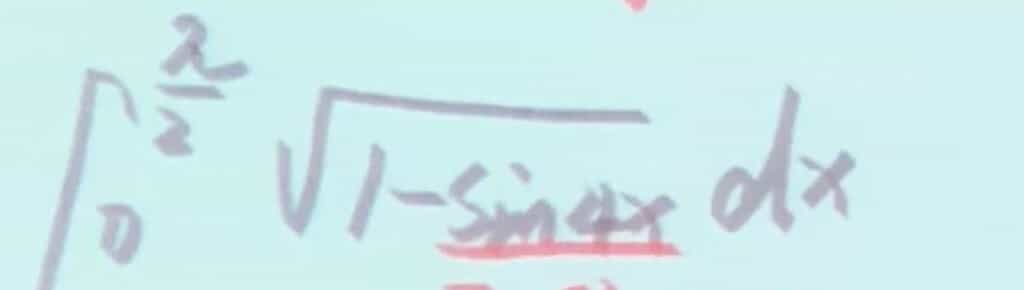 ∫₀^{π/2} √(1-sin4x) dx